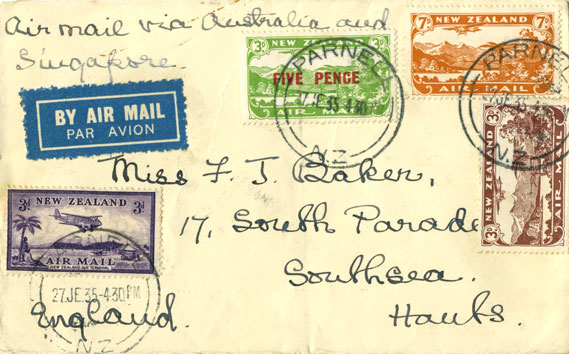 Air mail via Australia and
Singapore.
BY AIR MAIL
PAR AVION
3D NEW ZEALAND
FIVE PENCE
AIR MAIL
PARNELL
27 JE.35-4.30
N.Z
7D NEW ZEALAND 7D
AIR MAIL
PARNELL
27 JE.35-4.30
N.Z
3D NEW ZEALAND 3D
AIR MAIL
Miss F. J. Baker,
17, South Parade
Southsea.
Hants.
England.
3D NEW ZEALAND 3D
AIR MAIL
NEW ZEALAND AIR TERMINAL
27 JE.35-4.30PM
N.Z